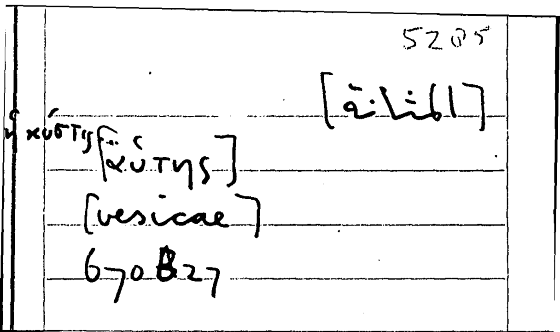 5205
[المثانة]
ἡ κύστις
[κύτης]
[vesicae]
670 B27